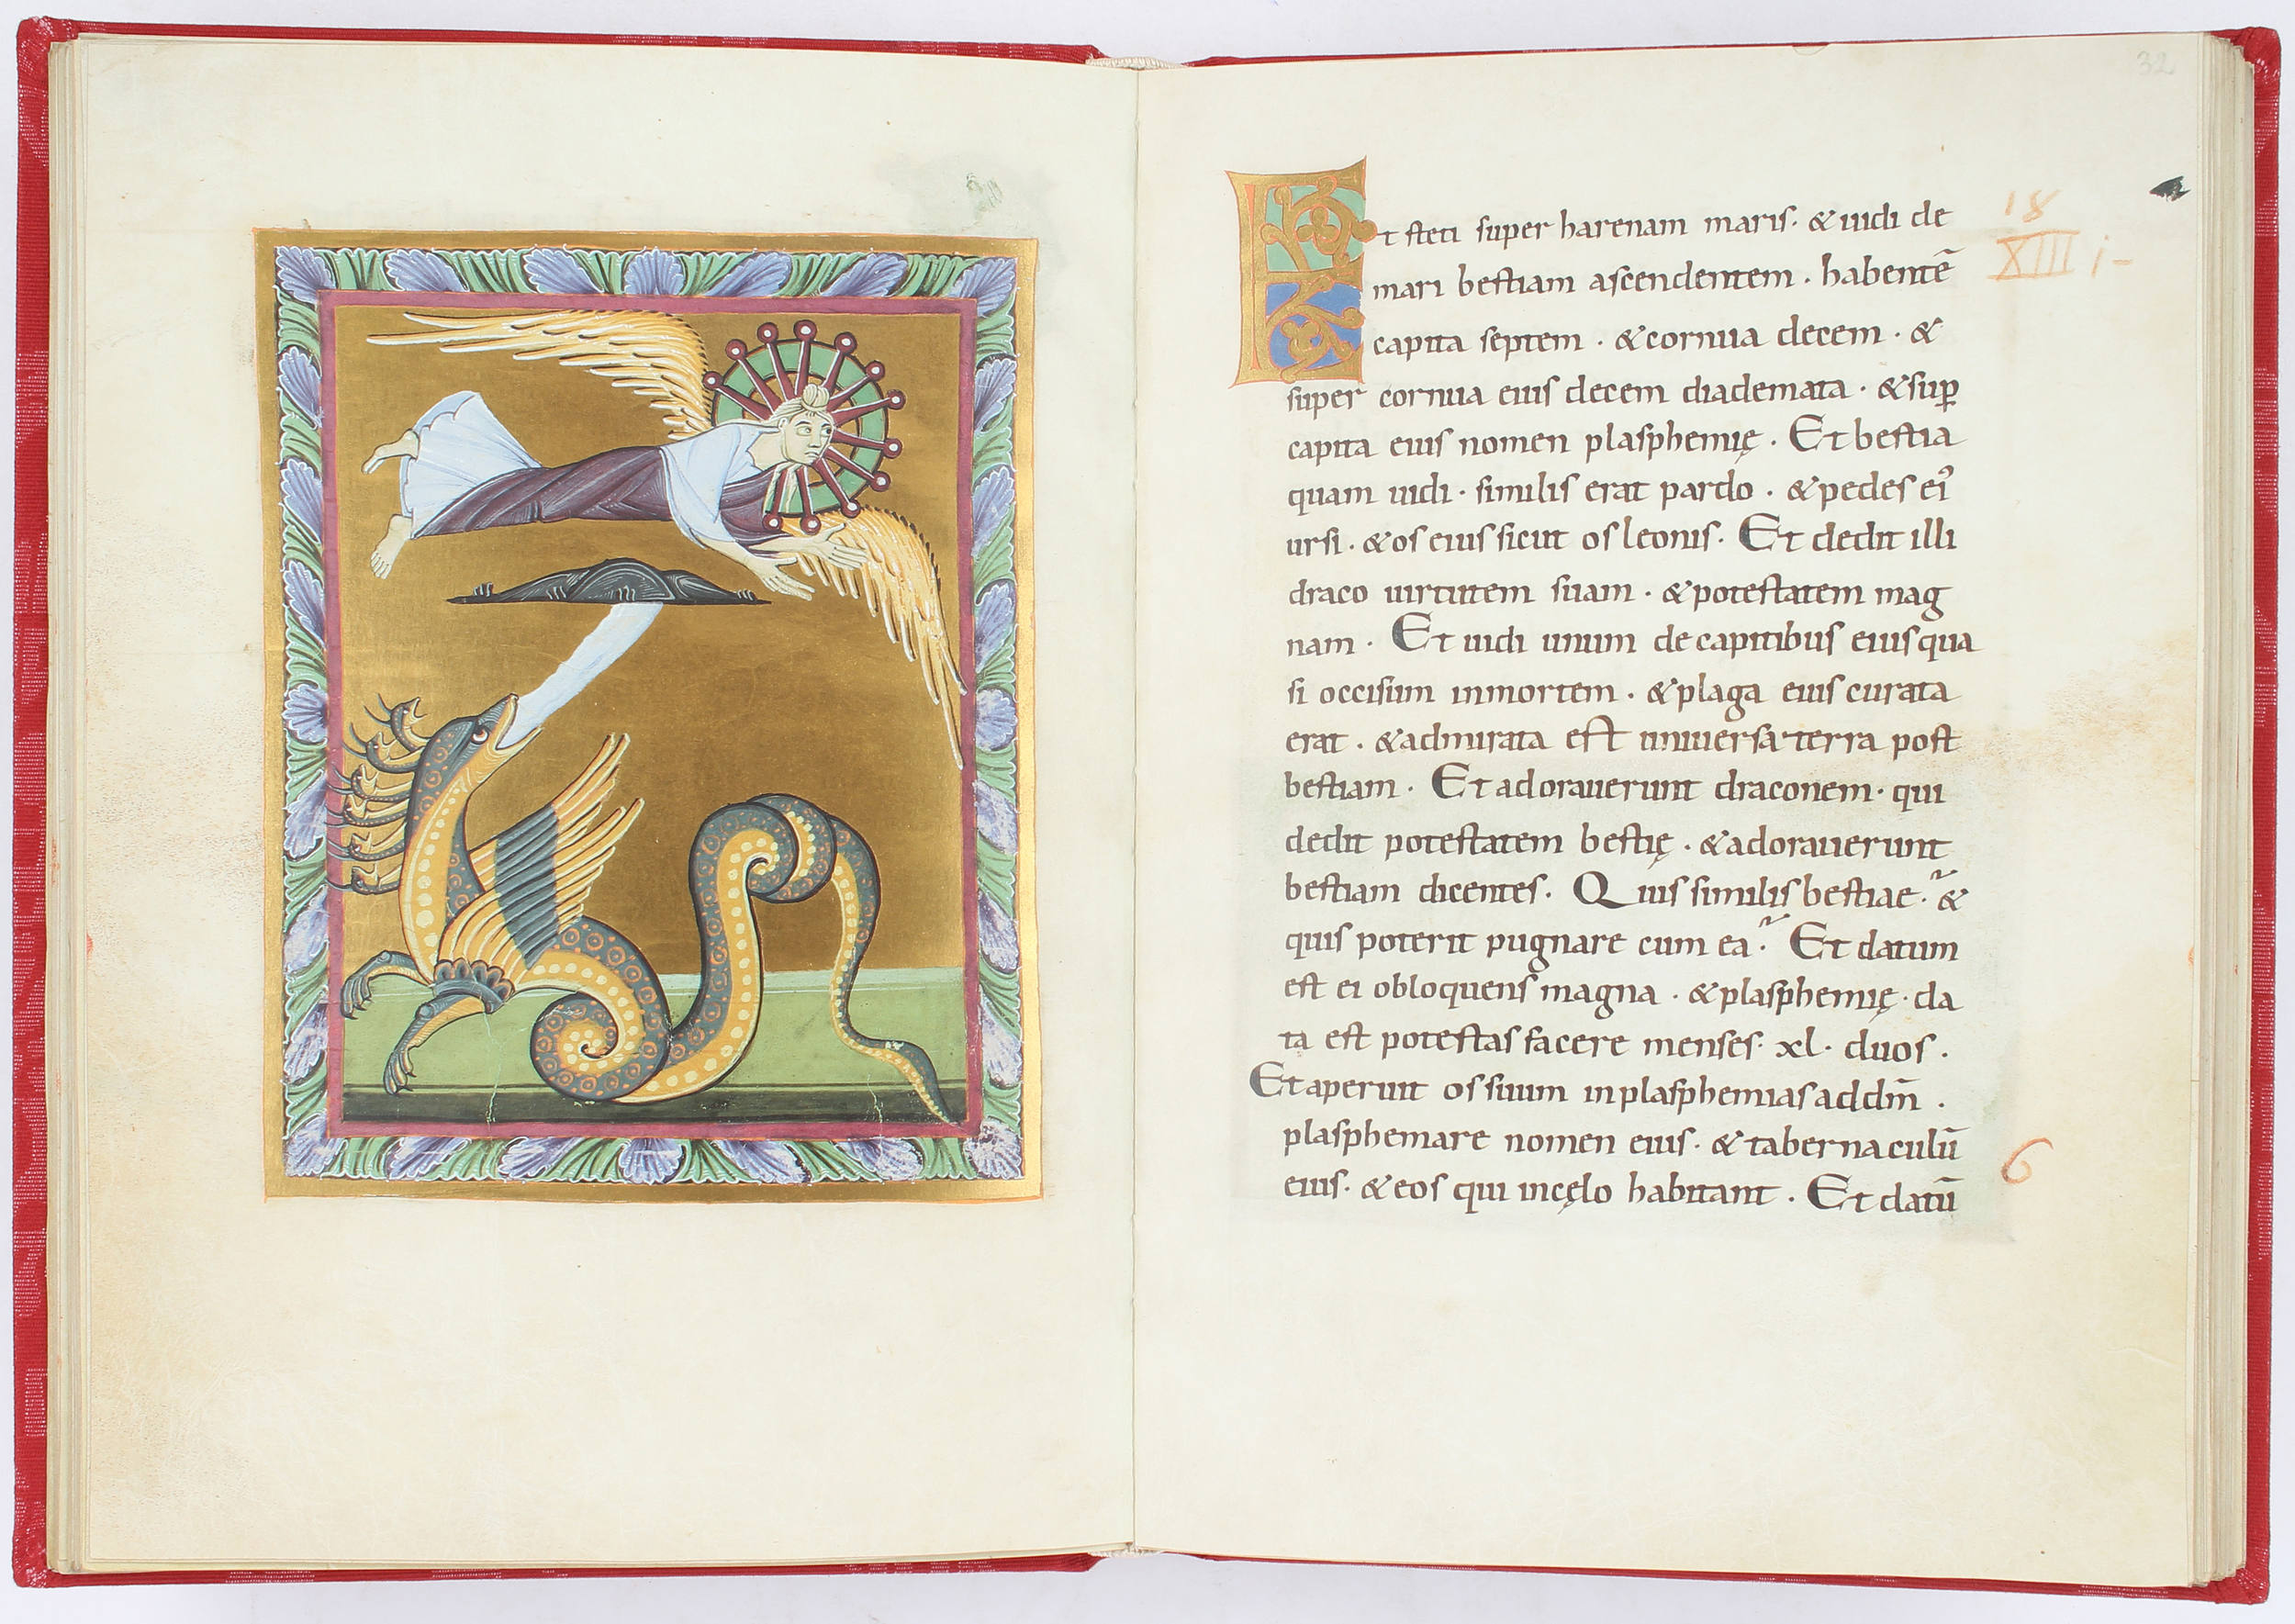 32
Et steti super harenam maris · & uidi de
mari bestiam ascendentem · habentē
capita septem · & cornua decem · &
super cornua eius decem diademata · & suꝑ
capita eius nomen plasphemię · Et bestia
quam uidi · similis erat pardo · & pedes eiꝰ
ursi · & os eius sicut os leonis · Et dedit illi
draco uirtutem suam · & potestatem mag
nam · Et uidi unum de capitibus eius qua
si occisum inmortem · & plaga eius curata
erat · & admirata est uniuersa terra post
bestiam · Et adorauerunt draconem · qui
dedit potestatem bestię · & adorauerunt
bestiam dicentes · Quis similis bestiae · &
quis poterit pugnare cum ea · Et datum
est ei os loquens magna · & plasphemię · da
ta est potestas facere menses · xl · duos ·
Et aperuit os suum in plasphemias ad dm̄ ·
plasphemare nomen eius · & tabernaculū
eius · & eos qui in cęlo habitant · Et datū
18
XIII i-
6